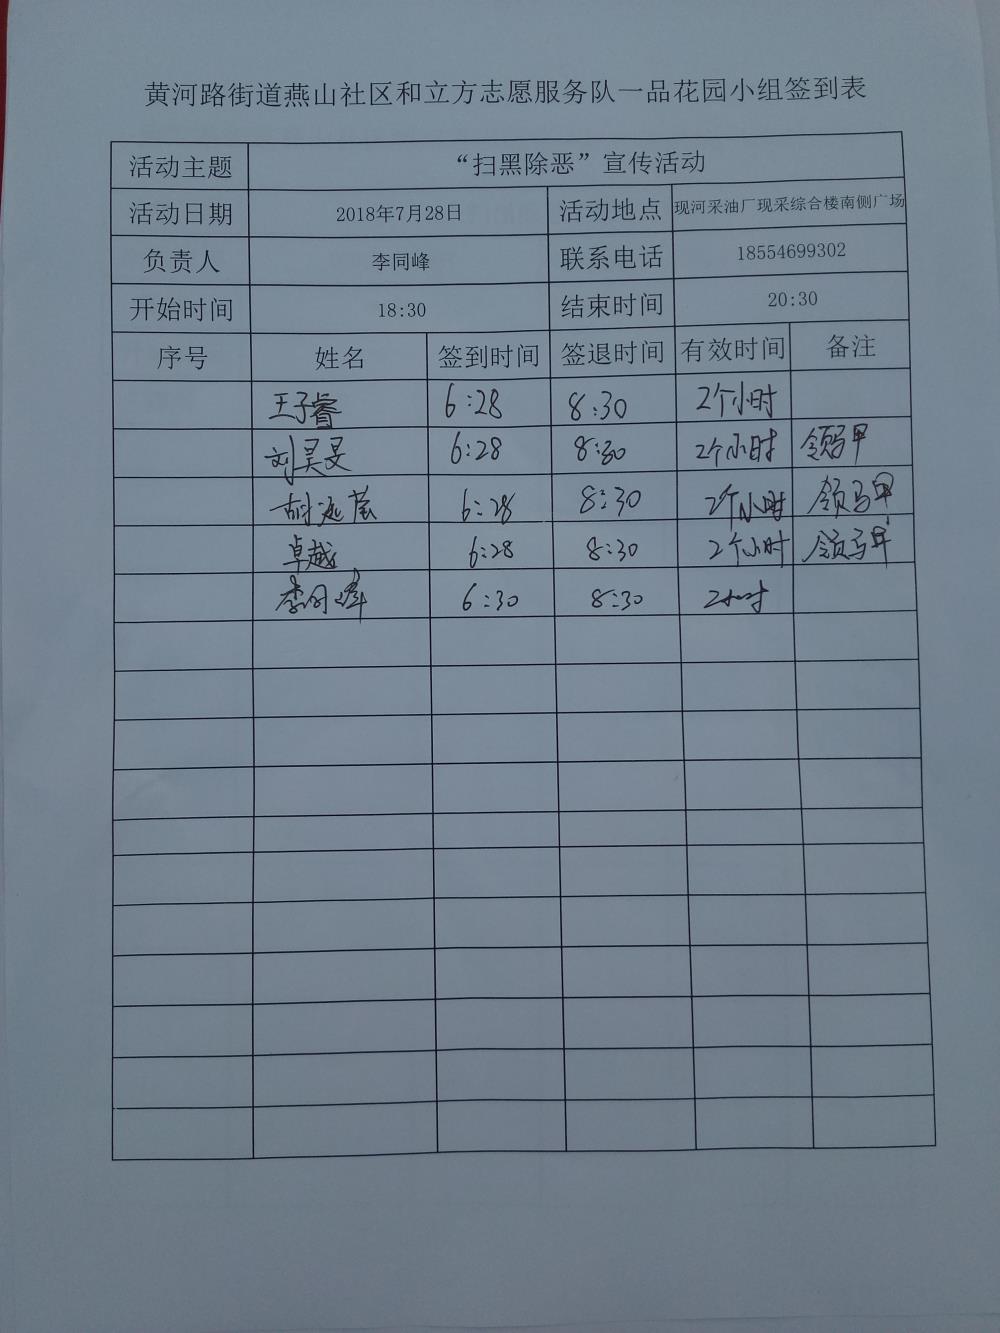 黄河路街道燕山社区和立方志愿服务队一品花园小组签到表
活动主题 “扫黑除恶”宣传活动
活动日期 2018年7月28日 活动地点 现河采油厂现采综合楼南侧广场
负责人 李同峰 联系电话 18554699302
开始时间 18:30 结束时间 20:30
序号 姓名 签到时间 签退时间 有效时间 备注
王子睿 6:28 8:30 2个小时
刘昊旻 6:28 8:30 2个小时 领马甲
6:28 8:30 2个小时 领马甲
卓越 6:28 8:30 2个小时 领马甲
李同峰 6:30 8:30 2小时